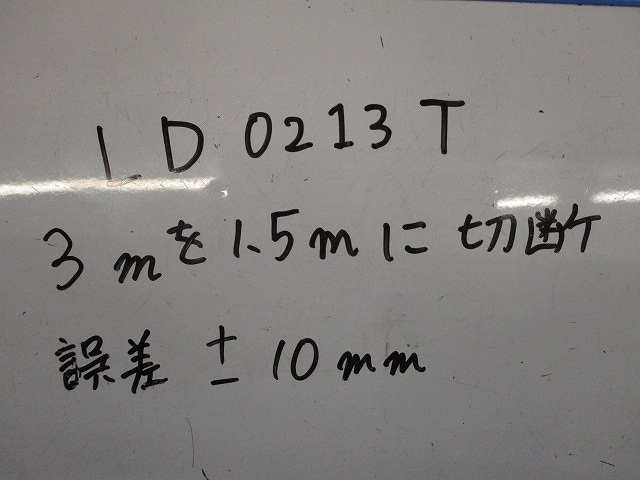 LD0213T
3mを1.5mに切断
誤差 ±10mm